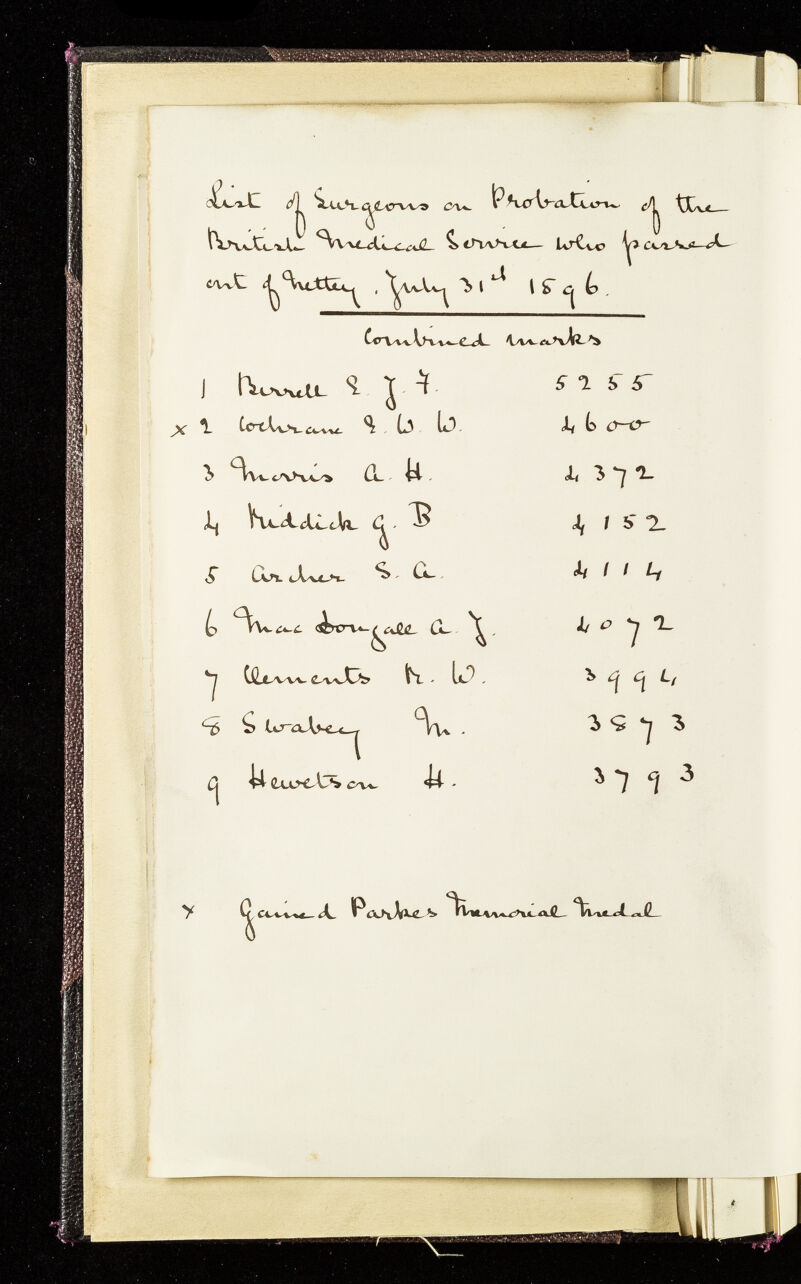 List of Surgeons on Probation of the
British Medical Service who passed
out of Netley, July 31st 1896.
Combined marks
1 Birrell E. J. F. 5255
x 2 Cochrane E. W. W. 4600
3 Morris A. H. 4372
4 Riddick G. B 4152
5 Archer S. A. 4114
6 MacDougall A. J. 4072
7 Clements R. W. 3994
8 Swabey M. 3873
9 Hewetson H. 3793
x Gained Parkes Memorial Medal